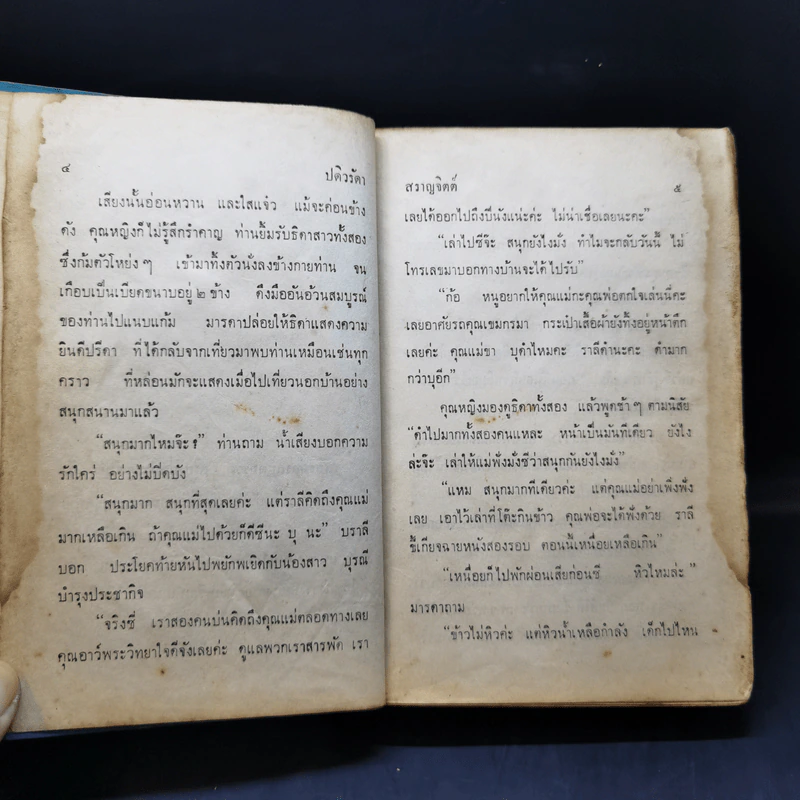 ๔
ปติวรัดา
เสียงนั้นอ่อนหวาน และใสแจ๋ว แม้จะค่อนข้าง
ดัง คุณหญิงก็ไม่รู้สึกรำคาญ ท่านยิ้มรับธิดาสาวทั้งสอง
ซึ่งก้มตัวโหย่งๆ เข้ามาทิ้งตัวนั่งลงข้างกายท่าน จน
เกือบเป็นเบียดขนาบอยู่ ๒ ข้าง ดึงมืออันอ้วนสมบูรณ์
ของท่านไปแนบแก้ม มารดาปล่อยให้ธิดาแสดงความ
ยินดีปรีดา ที่ได้กลับจากเที่ยวมาพบท่านเหมือนเช่นทุก
คราว ที่หล่อนมักจะแสดงเมื่อไปเที่ยวนอกบ้านอย่าง
สนุกสนานมาแล้ว
“สนุกมากไหมจ๊ะ?” ท่านถาม น้ำเสียงบอกความ
รักใคร่ อย่างไม่ปิดบัง
“สนุกมาก สนุกที่สุดเลยค่ะ แต่ราลีคิดถึงคุณแม่
มากเหลือเกิน ถ้าคุณแม่ไปด้วยก็ดีซีนะ บุ นะ” บราลี
บอก ประโยคท้ายหันไปพยักพเยิดกับน้องสาว บุรณี
บำรุงประชากิจ
“จริงซี่ เราสองคนบ่นคิดถึงคุณแม่ตลอดทางเลย
คุณอาว์พระวิทยาใจดีจังเลยค่ะ ดูแลพวกเราสารพัด เรา
สราญจิตต์
๕
เลยได้ออกไปถึงปีนังแน่ะค่ะ ไม่น่าเชื่อเลยนะคะ”
“เล่าไปซีจ๊ะ สนุกยังไงมั่ง ทำไมจะกลับวันนี้ ไม่
โทรเลขมาบอกทางบ้านจะได้ไปรับ”
“ก้อ หนูอยากให้คุณแม่กะคุณพ่อตกใจเล่นนี่คะ
เลยอาศัยรถคุณเขมกรมา กระเป๋าเสื้อผ้ายังทิ้งอยู่หน้าตึก
เลยค่ะ คุณแม่ขา บุดำไหมคะ ราลีดำนะคะ ดำมาก
กว่าบุอีก”
คุณหญิงมองดูธิดาทั้งสอง แล้วพูดช้าๆ ตามนิสัย
“ดำไปมากทั้งสองคนแหละ หน้าเป็นมันทีเดียว ยังไง
ล่ะจ๊ะ เล่าให้แม่ฟังมั่งซีว่าสนุกกันยังไงมั่ง”
“แหม สนุกมากทีเดียวค่ะ แต่คุณแม่อย่าเพิ่งฟัง
เลย เอาไว้เล่าที่โต๊ะกินข้าว คุณพ่อจะได้ฟังด้วย ราลี
ขี้เกียจฉายหนังสองรอบ ตอนนี้เหนื่อยเหลือเกิน”
“เหนื่อยก็ไปพักผ่อนเสียก่อนซี หิวไหมล่ะ”
มารดาถาม
“ข้าวไม่หิวค่ะ แต่หิวน้ำเหลือกำลัง เด็กไปไหน